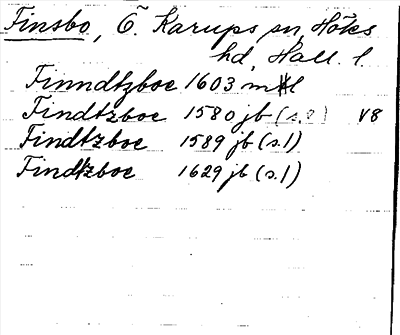 Finsbo, Ö. Karups sn, Höks
hd, Hall. l.
Finndtzboe 1603 mtl
Findtzboe 1580 jb (s.2) V8
Findtzboe 1589 jb (s.1)
Findtzboe 1629 jb (s.1)